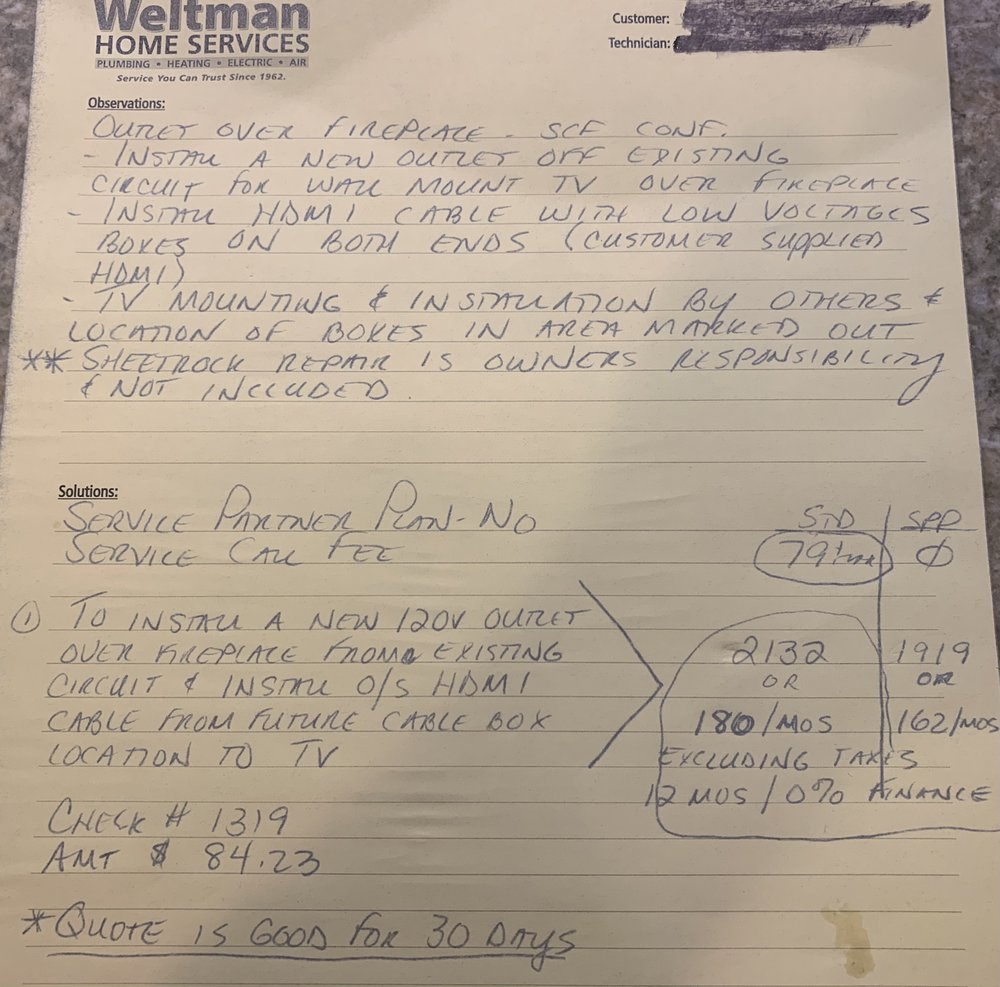 Weltman
HOME SERVICES
PLUMBING • HEATING • ELECTRIC • AIR
Service You Can Trust Since 1962.
Customer:
Technician:
Observations:
OUTLET OVER FIREPLACE - SCF CONF.
- INSTALL A NEW OUTLET OFF EXISTING
CIRCUIT FOR WALL MOUNT TV OVER FIREPLACE
- INSTALL HDMI CABLE WITH LOW VOLTAGES
BOXES ON BOTH ENDS (CUSTOMER SUPPLIED
HDMI)
- TV MOUNTING & INSTALLATION BY OTHERS &
LOCATION OF BOXES IN AREA MARKED OUT
** SHEETROCK REPAIR IS OWNERS RESPONSIBILITY
& NOT INCLUDED.
Solutions:
SERVICE PARTNER PLAN - NO STD SPP
SERVICE CALL FEE 79+TAX Ø
① TO INSTALL A NEW 120V OUTLET
OVER FIREPLACE FROM EXISTING 2132 1919
CIRCUIT & INSTALL O/S HDMI OR OR
CABLE FROM FUTURE CABLE BOX 180/MOS 162/MOS
LOCATION TO TV EXCLUDING TAXES
12 MOS / 0% FINANCE
CHECK # 1319
AMT $ 84.23
* QUOTE IS GOOD FOR 30 DAYS